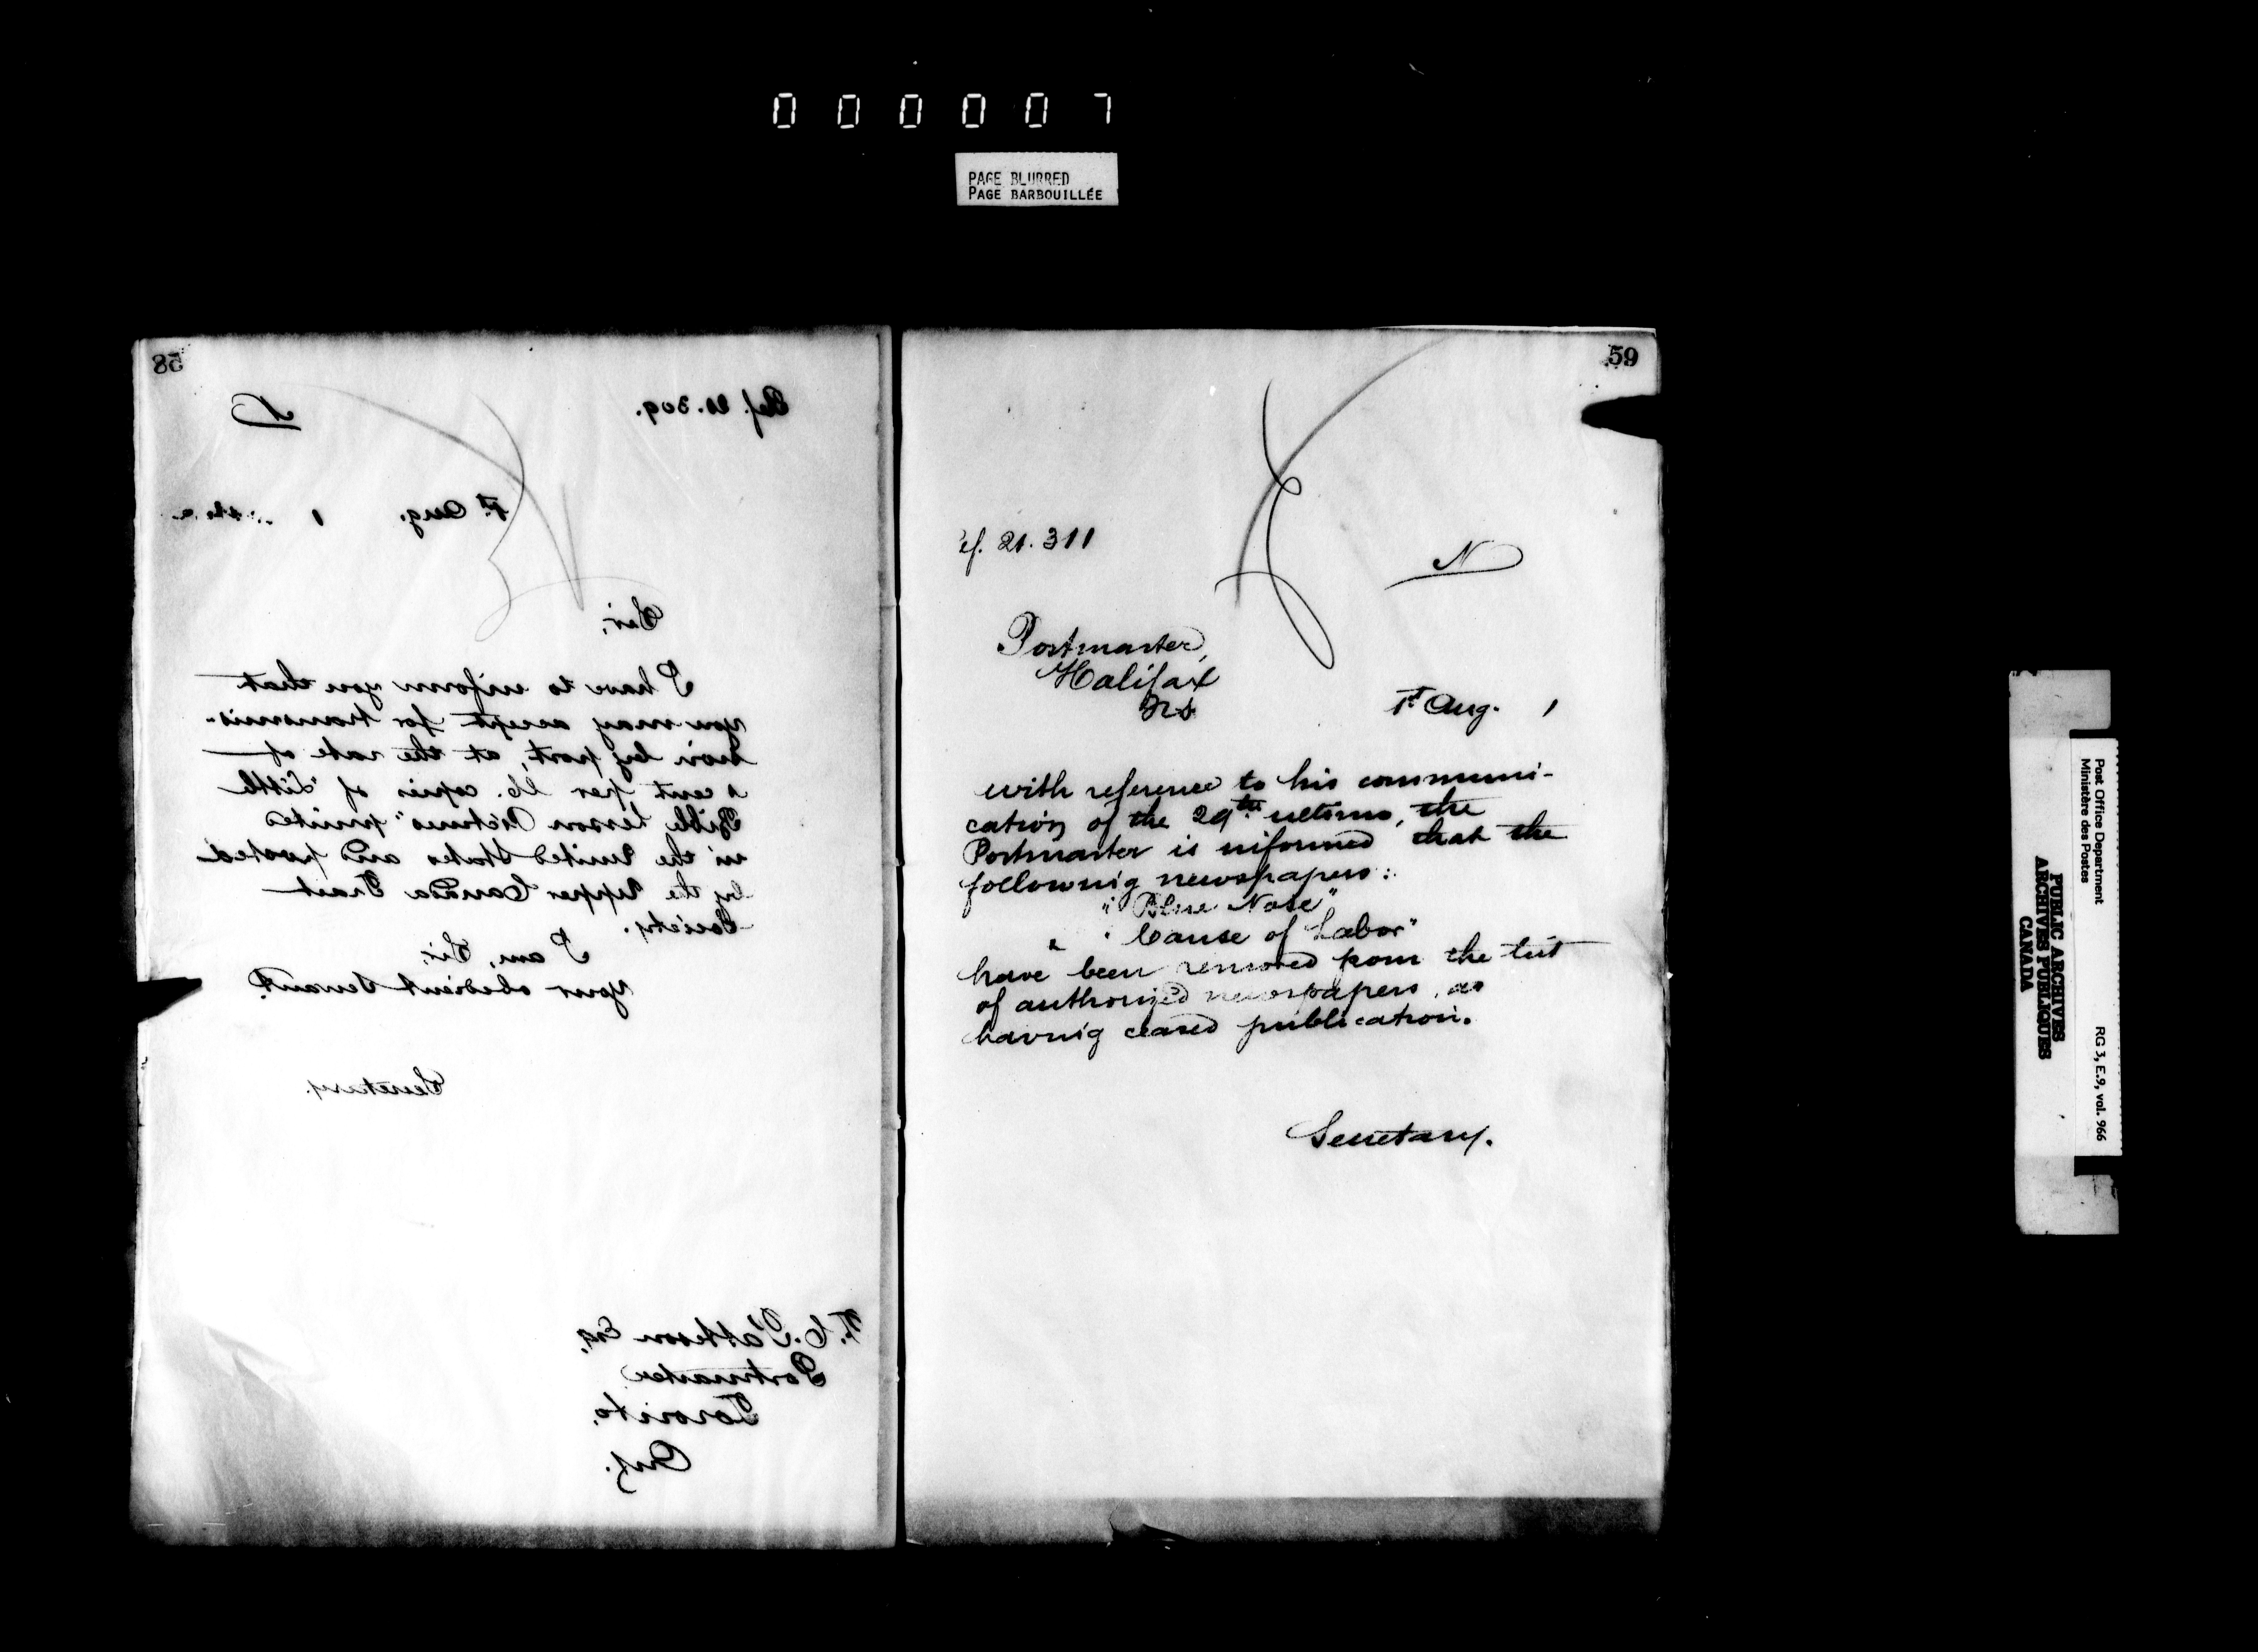 000007
PAGE BLURRED
PAGE BARBOUILLÉE
58
Ref. 21.309.
N
1st Aug. 1
Sir,
I have to inform you that
you may accept for transmis-
sion by post, at the rate of
1 cent per lb. copies of "Little
Bible Lesson Pictures" printed
in the United States and posted
by the Upper Canada Tract
Society.
I am, Sir,
Your obedient Servant,
Secretary.
T. C. Patteson Esq,
Postmaster
Toronto,
Ont.
59
ef. 21.311
N
Postmaster,
Halifax
N.S.
1st Aug. 1
with reference to his communi-
cation of the 29th ultimo, the
Postmaster is informed that the
following newspapers:
"Blue Nose"
" Cause of Labor"
have been removed from the list
of authorized newspapers, as
having ceased publication.
Secretary.
Post Office Department
Ministère des Postes
RG 3, E.9, vol. 966
PUBLIC ARCHIVES
ARCHIVES PUBLIQUES
CANADA